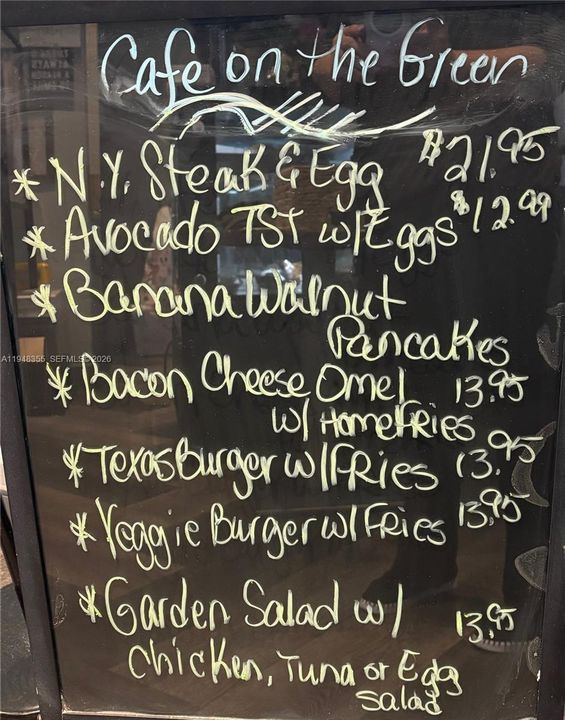 Cafe on the Green
* N.Y. Steak & Egg $21.95
* Avocado TST w/Eggs $12.99
* Banana Walnut
Pancakes
* Bacon Cheese Omel 13.95
w/ HomeFries
* Texas Burger w/FRies 13.95
* Veggie Burger w/ Fries 13.95
* Garden Salad w/ 13.95
chicken, Tuna or Egg
salad
A11948355 SEFMLS© 2026